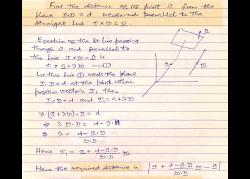 Find the distance of the point a from the
plane r.n = d measured parallel to the
straight line
Equation of the St line passing
through a and parallel to
the line is
r = a + λb —(1)
Let this line (1) meets the plane
r.n = d at the point whose
position vector is r₁ then
r₁.n = d and r₁ = a+λb
⇒ (a+λb).n = d
⇒ λ b.n = d - a.n
⇒ λ = d - a.n / b.n
Hence r₁ = a + d-a.n / b.n b
Hence the required distance is | a + d-a.n / b.n b - a |